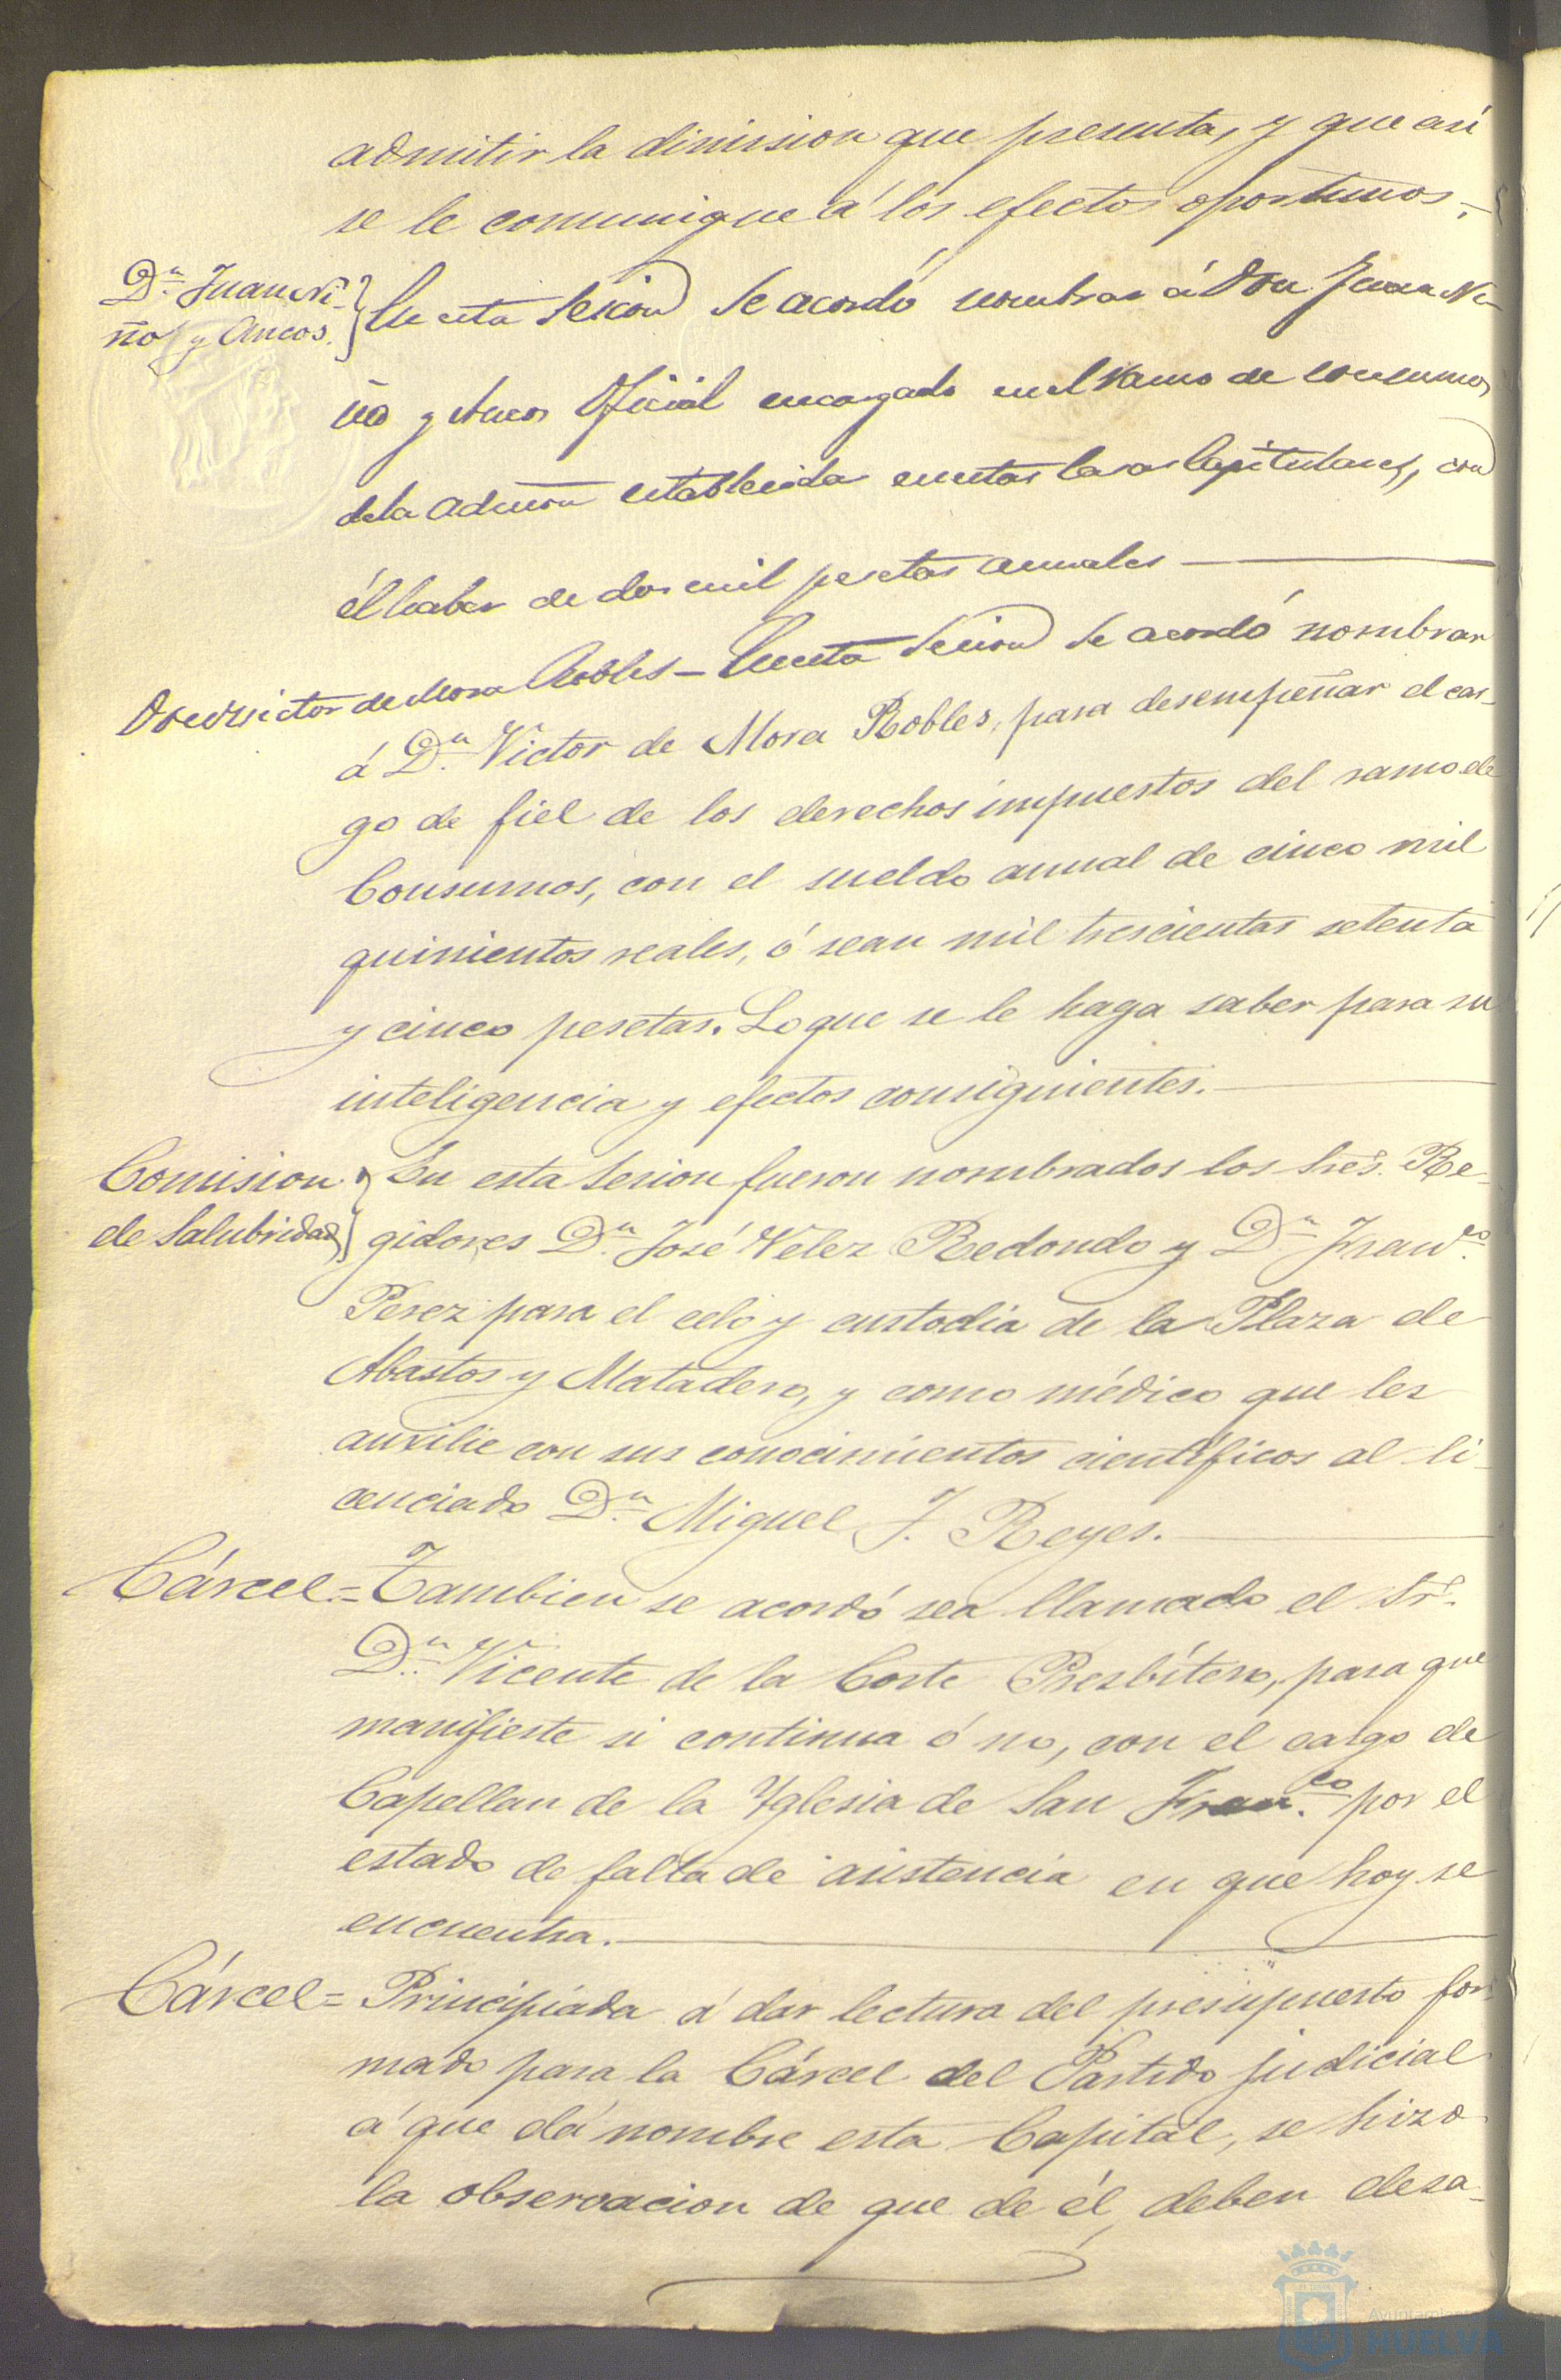 admitir la dimision que presenta, y que asi
se le comunique á los efectos oportunos.
Dn. Juan Ni-
ño y Ancos.
En esta Sesion Se acordó nombrar á Don Juan Ni-
ño y Ancos Oficial encargado en el Ramo de consumos
de la Admon establecida en estas Casas Capitulares, con
él haber de dos mil pesetas anuales
Don Victor de Mora Robles - En esta Sesion Se acordó nombrar
á Dn. Victor de Mora Robles, para desempeñar el car-
go de fiel de los derechos impuestos del ramo de
Consumos, con el sueldo anual de cinco mil
quinientos reales, ó sean mil trescientas setenta
y cinco pesetas. Lo que se le haga saber para su
inteligencia y efectos consiguientes.
Comision
de Salubridad
En esta Sesion fueron nombrados los Sres. Re-
gidores Dn. José Velez Redondo y Dn. Franco.
Perez para el celo y custodia de la Plaza de
Abastos y Matadero, y como médico que les
auxilie con sus conocimientos científicos al li-
cenciado Dn. Miguel J. Reyes.
Cárcel = Tambien se acordó sea llamado el Sr.
Dn. Vicente de la Corte Presbítero, para que
manifieste si continua ó no, con el cargo de
Capellan de la Yglesia de San Franco. por el
estado de falta de asistencia en que hoy se
encuentra.
Cárcel = Principiada á dar lectura del presupuesto for-
mado para la Cárcel del Partido judicial
á que dá nombre esta Capital, se hizo
la observacion de que de él, deben desa-
HUELVA